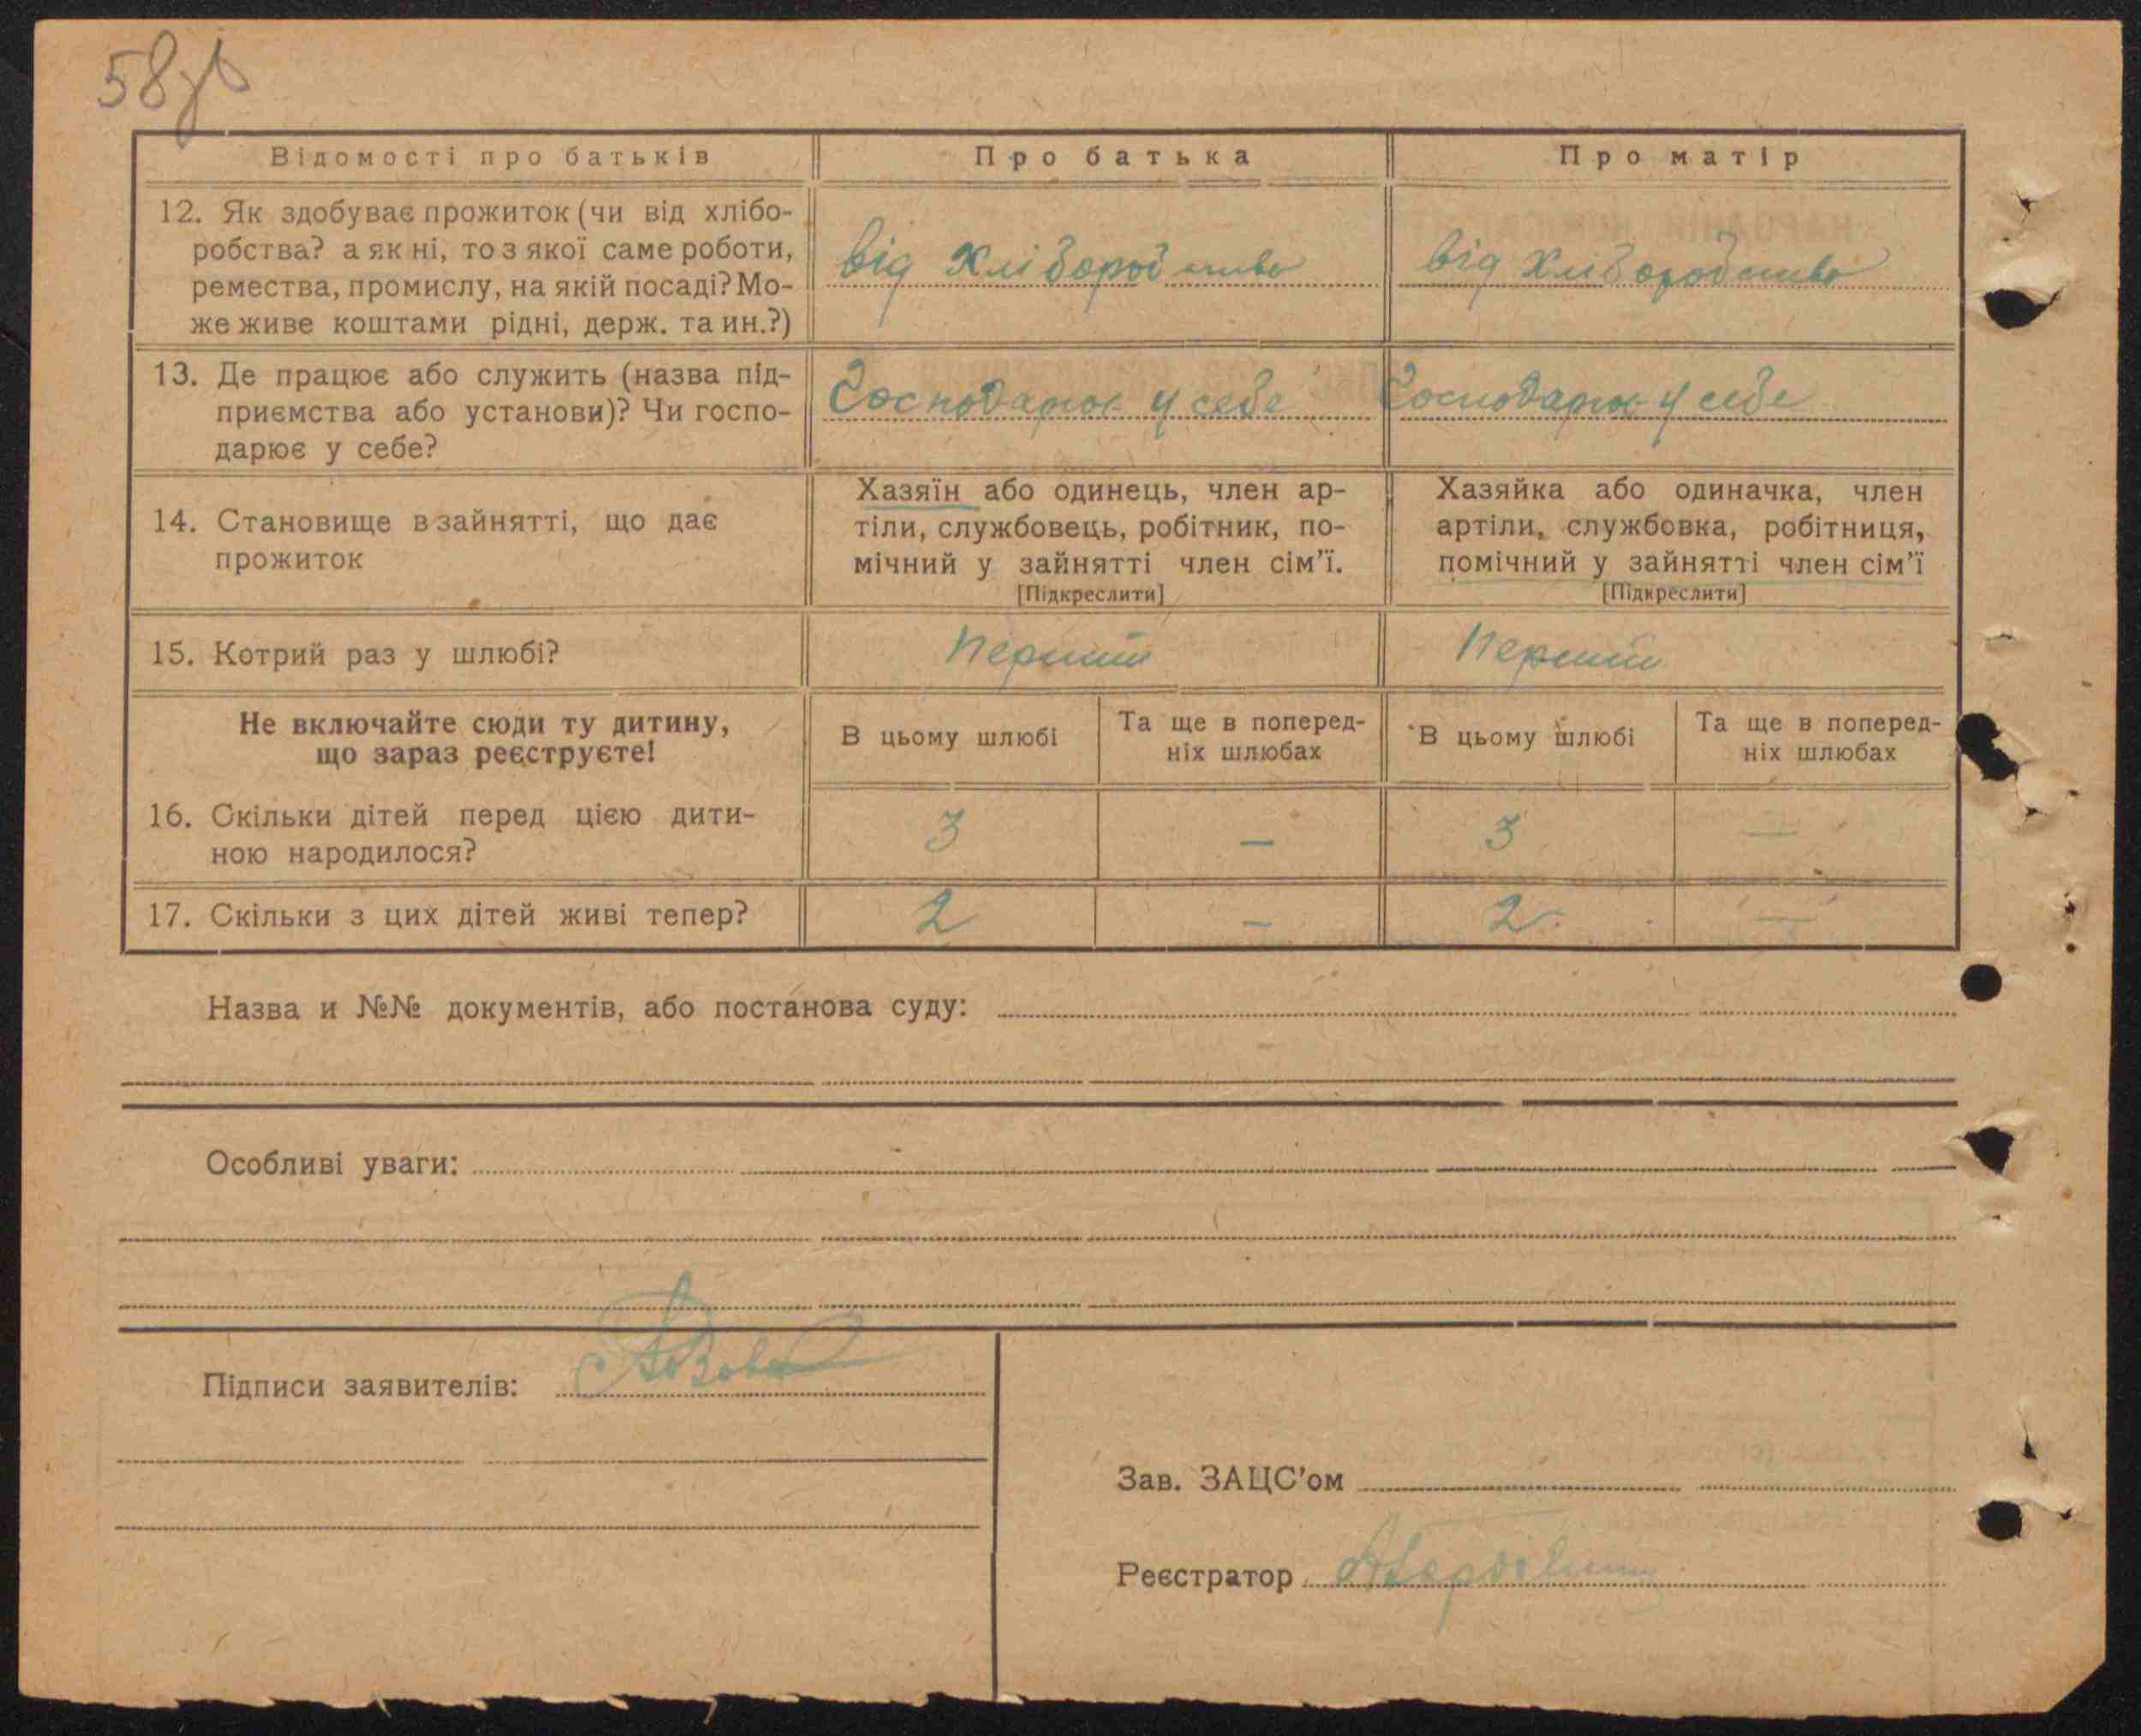 58зв
Відомості про батьків
Про батька
Про матір
12. Як здобуває прожиток (чи від хлібо-
робства? а як ні, то з якої саме роботи,
ремества, промислу, на якій посаді? Мо-
же живе коштами рідні, держ. та ин.?)
від хліборобства
від хліборобства
13. Де працює або служить (назва під-
приємства або установи)? Чи госпо-
дарює у себе?
Господарює у себе
Господарює у себе
14. Становище в зайнятті, що дає
прожиток
Хазяїн або одинець, член ар-
тіли, службовець, робітник, по-
мічний у зайнятті член сім'ї.
[Підкреслити]
Хазяйка або одиначка, член
артіли, службовка, робітниця,
помічний у зайнятті член сім'ї
[Підкреслити]
15. Котрий раз у шлюбі?
Перший
Перший
Не включайте сюди ту дитину,
що зараз реєструєте!
В цьому шлюбі
Та ще в поперед-
ніх шлюбах
В цьому шлюбі
Та ще в поперед-
ніх шлюбах
16. Скільки дітей перед цією дити-
ною народилося?
3 — 3 —
17. Скільки з цих дітей живі тепер?
2 — 2 —
Назва и №№ документів, або постанова суду:
Особливі уваги:
Підписи заявителів:
Зав. ЗАЦС'ом
Реєстратор